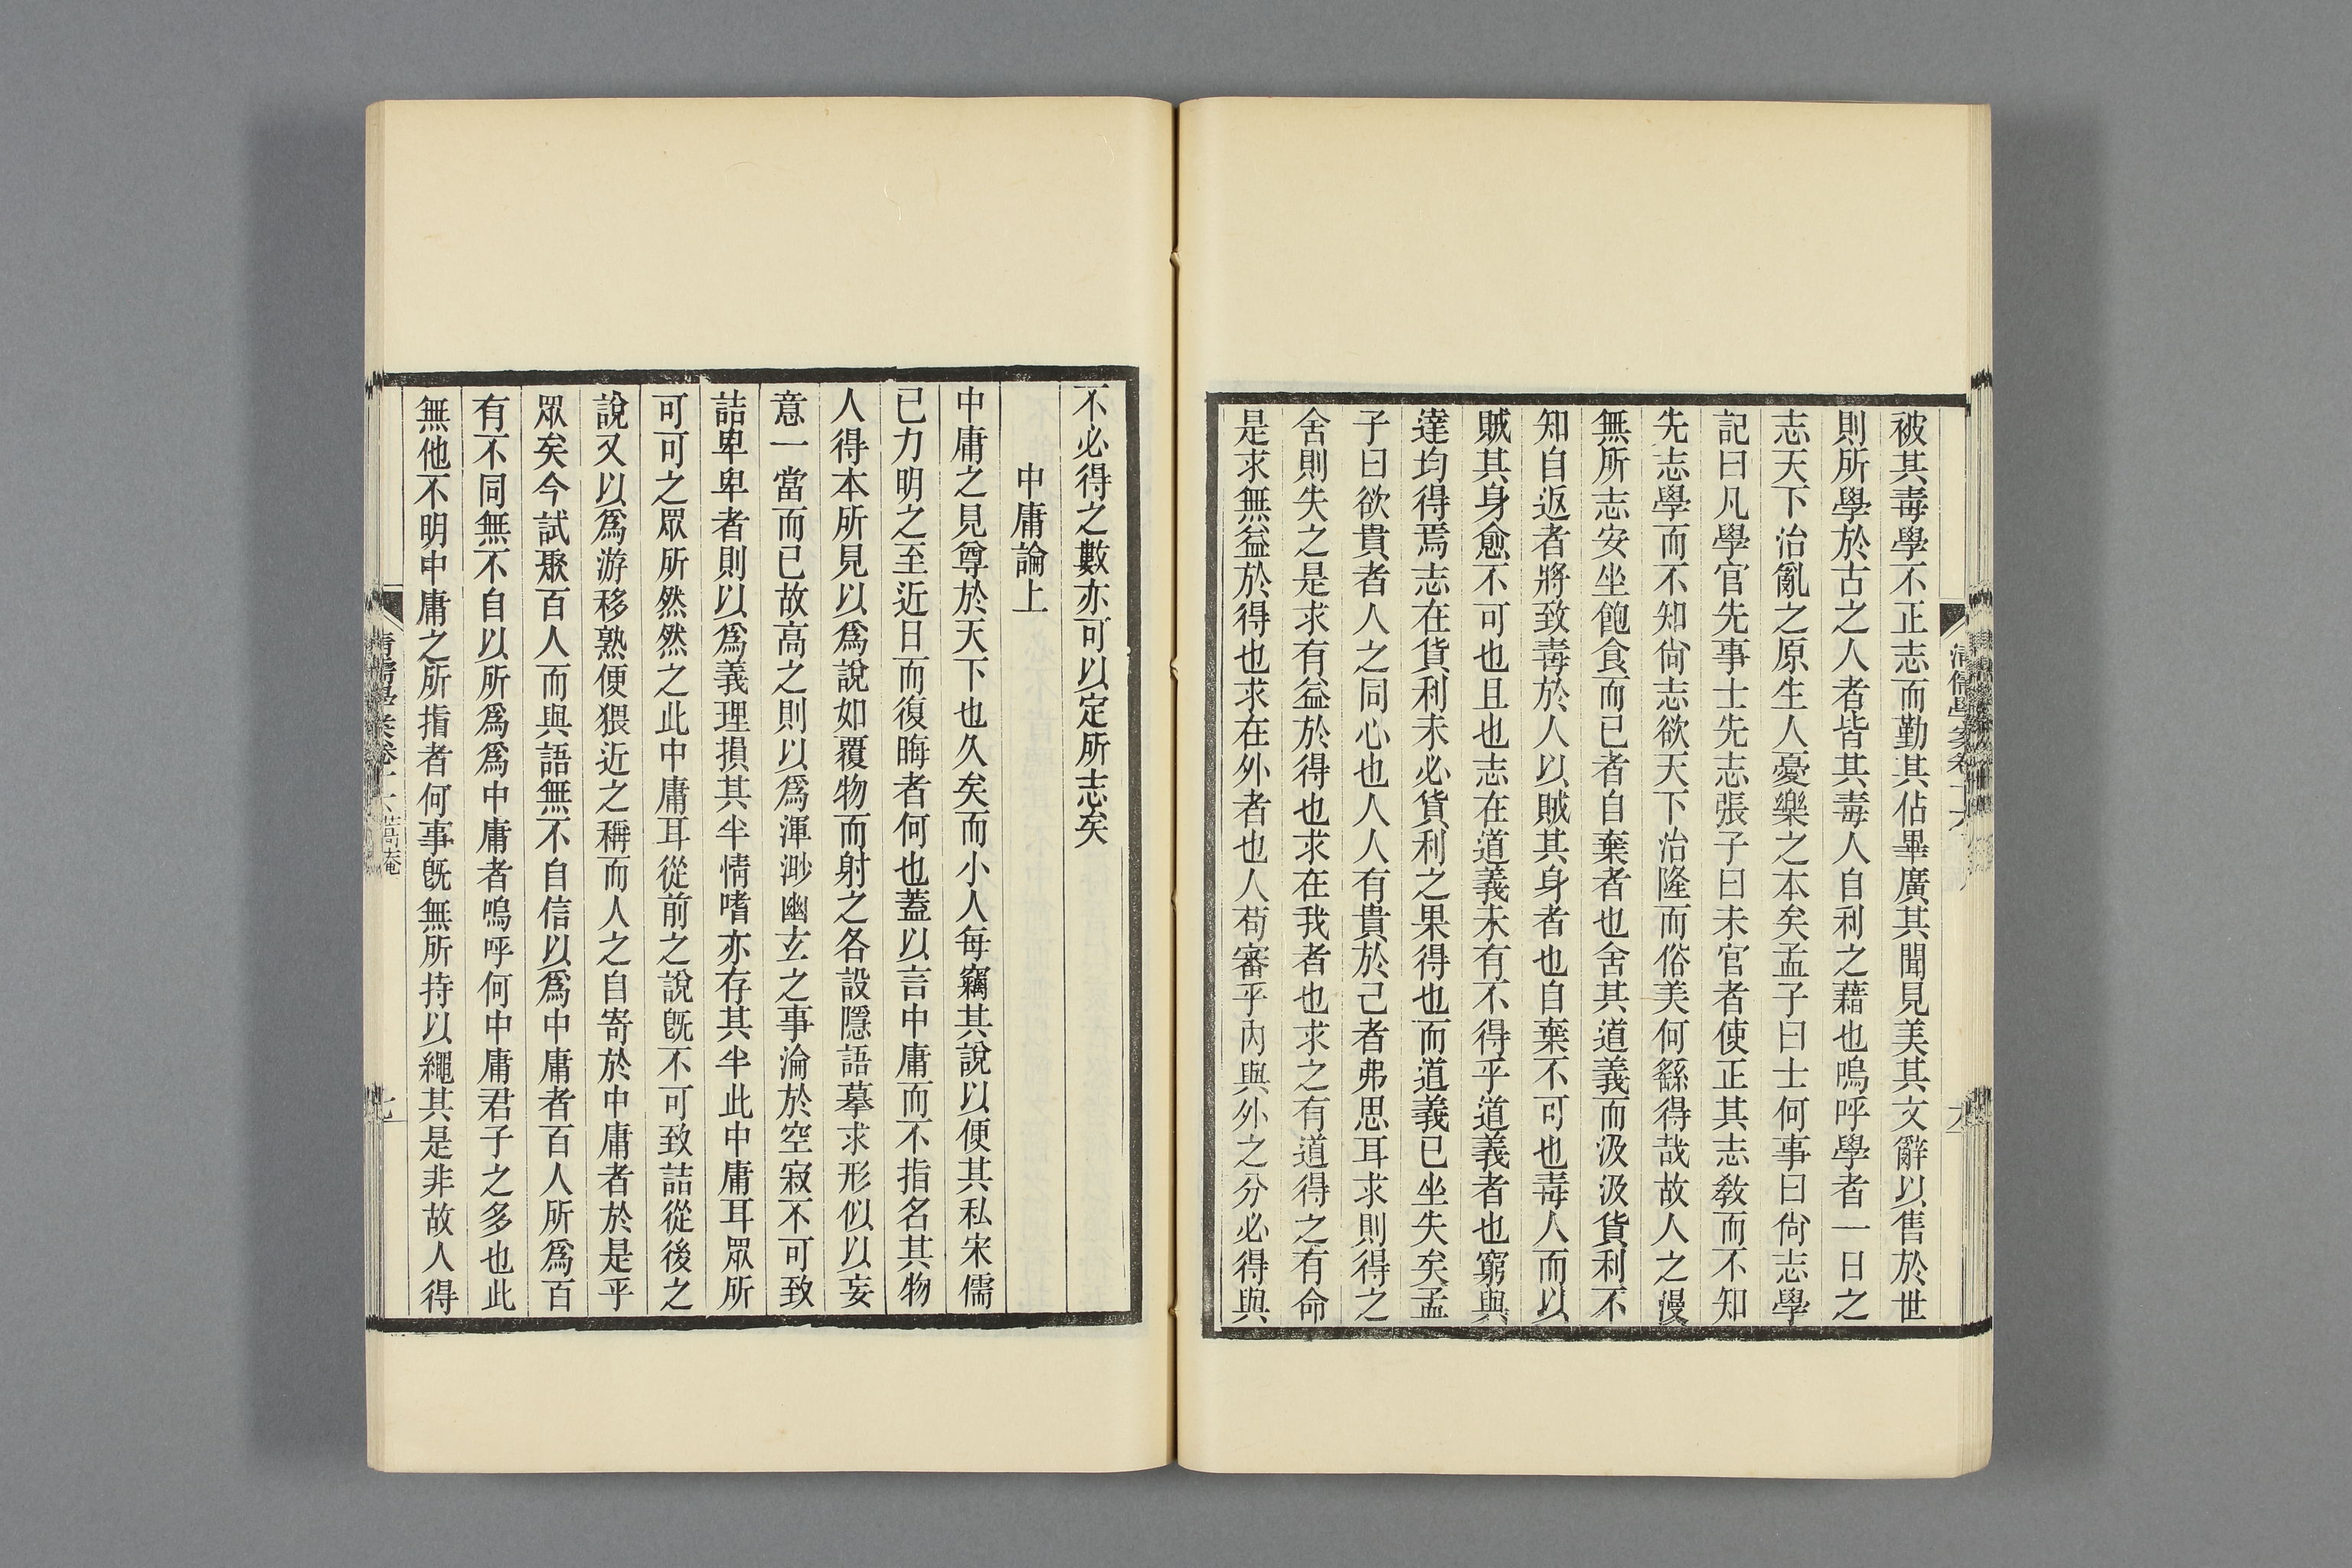 被其毒學不正志而勤其佔畢廣其聞見美其文辭以售於世
則所學於古之人者皆其毒人自利之藉也嗚呼學者一日之
志天下治亂之原生人憂樂之本矣孟子曰士何事曰尙志學
記曰凡學官先事士先志張子曰未官者使正其志敎而不知
先志學而不知尙志欲天下治隆而俗美何繇得哉故人之漫
無所志安坐飽食而已者自棄者也舍其道義而汲汲貨利不
知自返者將致毒於人以賊其身者也自棄不可也毒人而以
賊其身愈不可也且也志在道義未有不得乎道義者也窮與
達均得焉志在貨利未必貨利之果得也而道義已坐失矣孟
子曰欲貴者人之同心也人人有貴於己者弗思耳求則得之
舍則失之是求有益於得也求在我者也求之有道得之有命
是求無益於得也求在外者也人苟審乎內與外之分必得與
不必得之數亦可以定所志矣
中庸論上
中庸之見尊於天下也久矣而小人每竊其說以便其私宋儒
已力明之至近日而復晦者何也蓋以言中庸而不指名其物
人得本所見以爲說如覆物而射之各設隱語摹求形似以妄
意一當而已故高之則以爲渾渺幽玄之事淪於空寂不可致
詰卑卑者則以爲義理損其半情嗜亦存其半此中庸耳眾所
可可之眾所然然之此中庸耳從前之說旣不可致詰從後之
說又以爲游移熟便猥近之稱而人之自寄於中庸者於是乎
眾矣今試聚百人而與語無不自信以爲中庸者百人所爲百
有不同無不自以所爲爲中庸者嗚呼何中庸君子之多也此
無他不明中庸之所指者何事旣無所持以繩其是非故人得